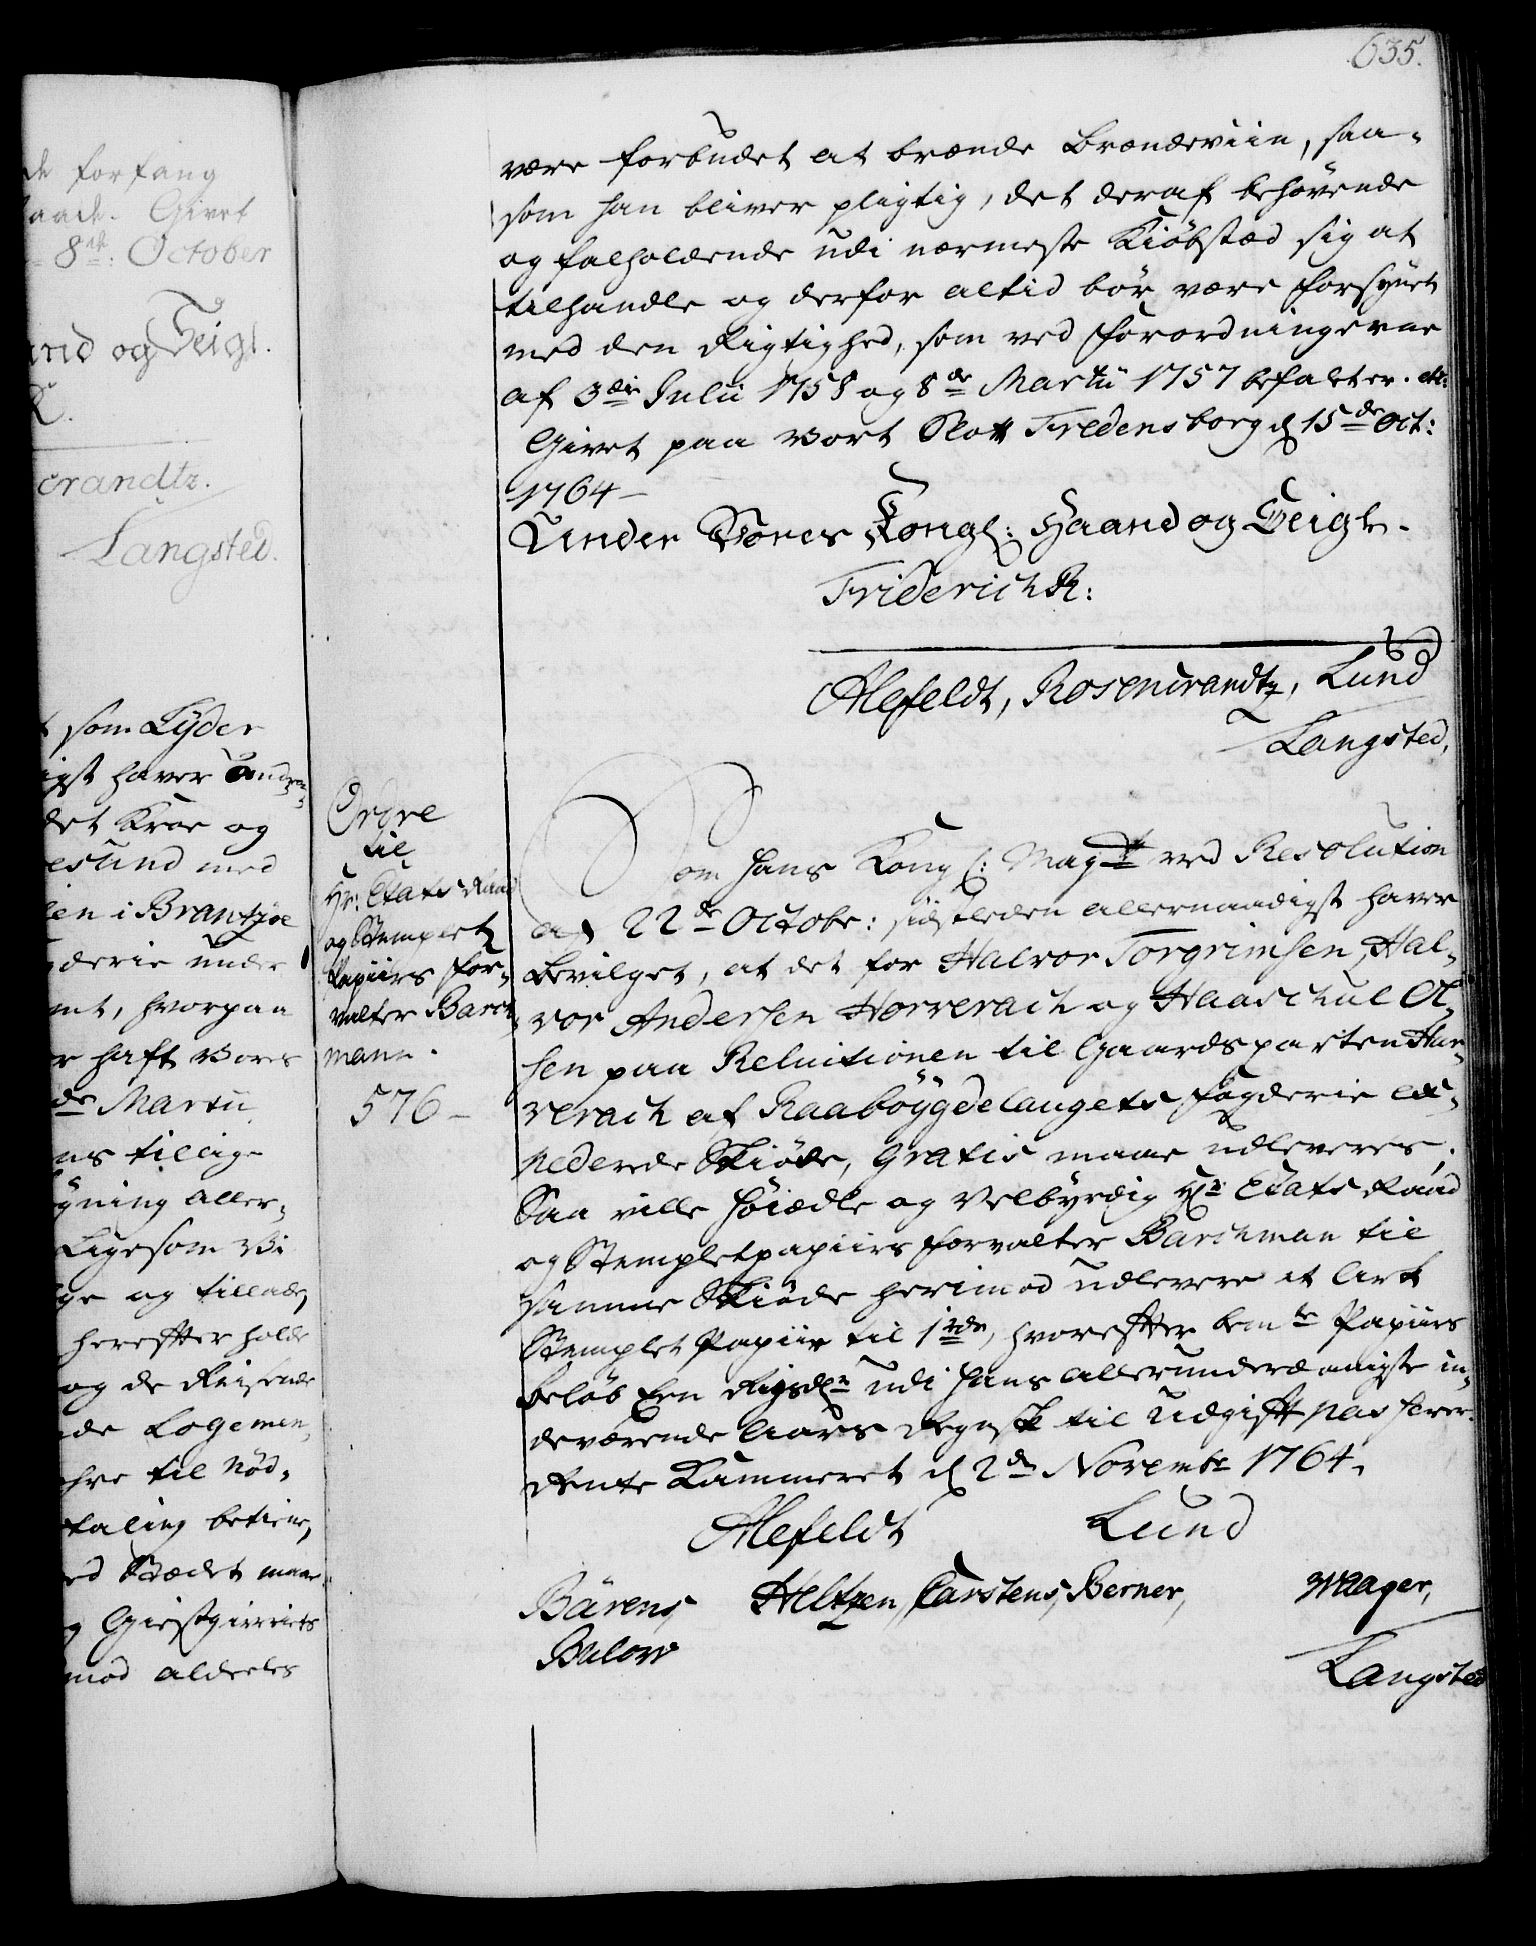 de forfang
aade. Givet
8de: October
and og Seigl.
R.
crandtz.
Langsted.
som Lyder
igst haver
det Kroe og
esund med
en i Brantzöe
gderie under
mt, hvorpaa
r haft Vores
de Martii
ns tillige
gning aller-
Ligesom Vi
ge og tillade,
herefter holde
og de Reisende
de Logemen,
hve til Nöd-
taling betiene,
ed Stædet maae
g Giestgiveriets
mod aldeeles
635.
være forbudet at brænde Brændeviin, saa-
som han bliver pligtig, det deraf behövende
og falholdende udi nærmeste Kiöbstæd sig at
tilhandle og derfor altid bör være forsynet
med den Rigtighed, som ved Forordningerne
af 3die Julii 1758 og 8de Martii 1757 befalet er. etc:
Givet paa Vort Slott Fredensborg d 15de Oct:
1764
Under Vores Kongl: Haand og Seigl.
Friderich R:
Alefeldt, Rosencrandtz, Lund
Langsted,
Ordre
til
Hr: Etats Raad
og Stemplet
Papiirs For-
valter Barch
mann.
576
Som Hans Kongl: Mayt ved Resolution
af 22de Octobr: sidstleden allernaadigst haver
Bevilget, at det for Halvor Torgrimsen, Hal-
vor Andersen Horverach og Haaschul Ol-
sen paa Reluitionen til Gaardsparten Hor-
verach af Raaböygdelaugets Fogderie ex-
pederede Skiöde, gratis maae udleveres;
Saa ville Höiædle og Velbyrdig Hr: Etats Raad
og Stempletpapiirs Forvalter Barchman til
samme Skiöde herimod udlevere et Ark
Stemplet Papiir til 1 rdr, hvorefter bemte Papiirs
beløb Een Rigsdlr udi Hans allerunderdanigste in-
deværende Aars Regnsk: til Udgift passerer.
Rente Kammeret d 2de Novembr 1764.
Alefeldt Lund
Bärens, Heltzen, Carstens, Berner, Waager,
Bulow
Langsted